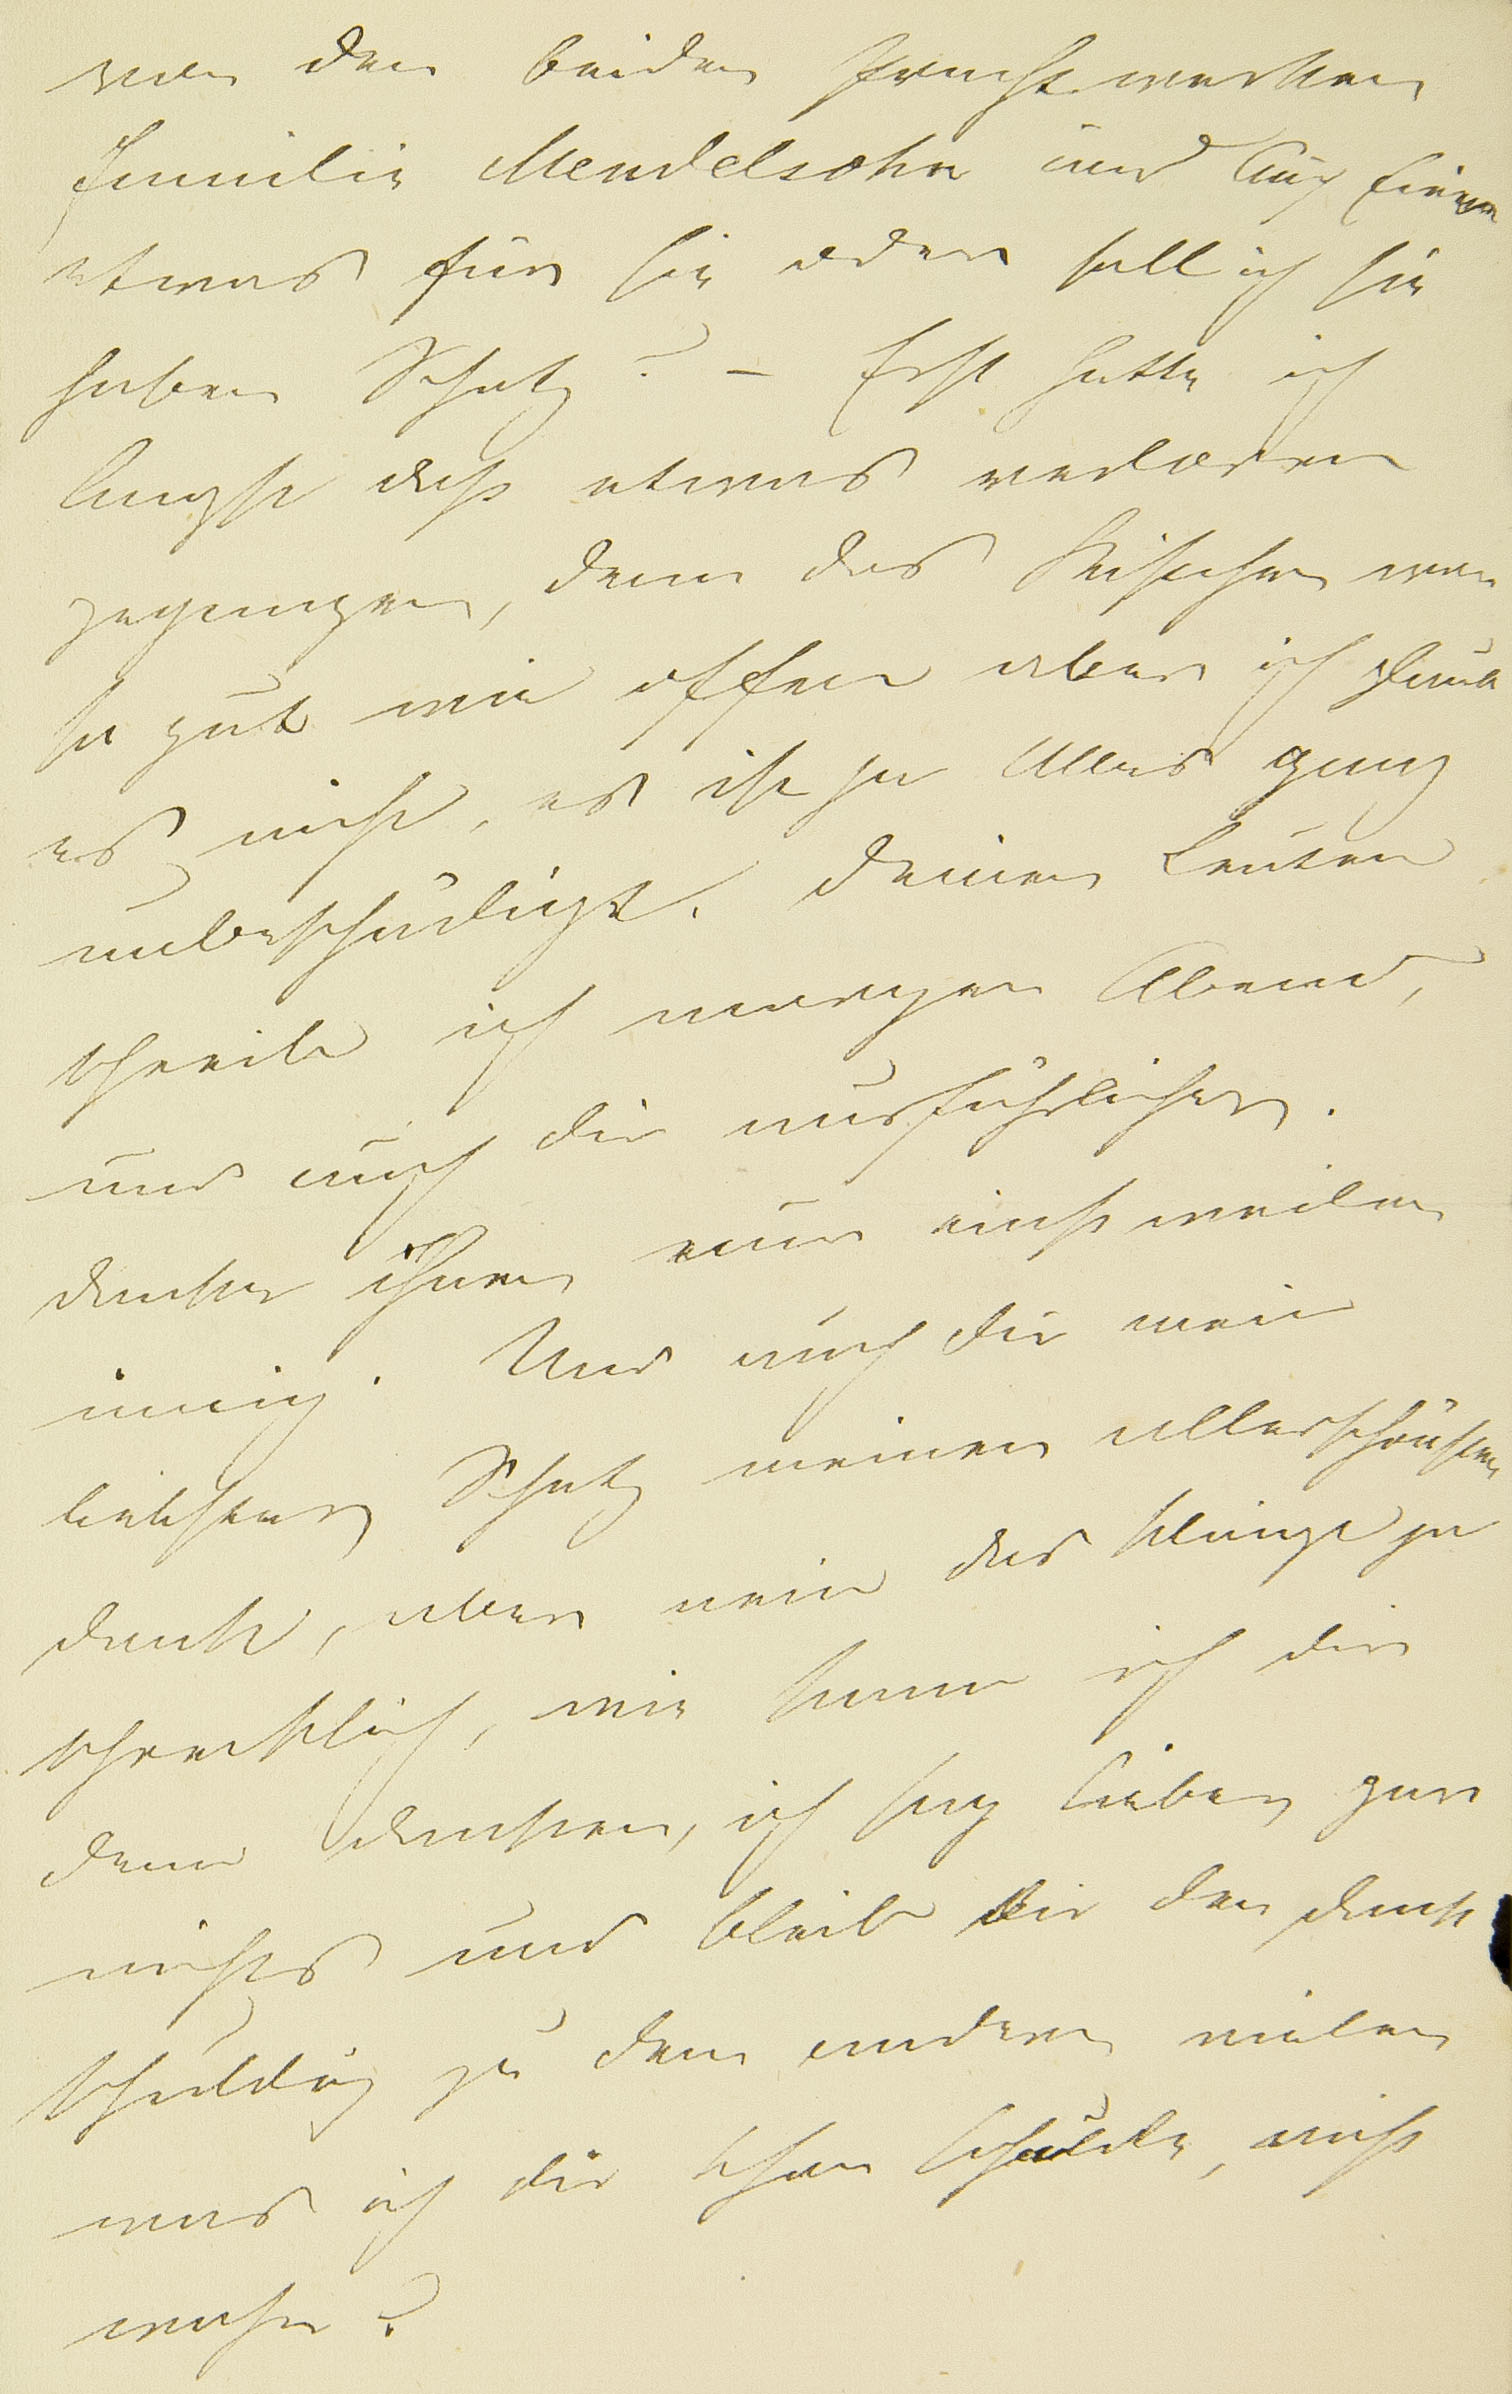 von den beiden Prachtwerken
Familie Mendelsohn und Aus Einem
etwas für Sie oder soll ich sie
haben Schatz? – Erst hatte ich
Angst daß etwas verloren
gegangen, denn das Kistchen war
so gut wie offen aber ich glaub
es nicht, es ist ja Alles ganz
unbeschädigt. Deinen Leuten
schreib ich morgen Abend,
und auch dir ausführlicher.
danke ihnen nur einstweilen
innig. Und auch dir mein
liebster Schatz meinen allerschönsten
Dank, aber nein das klingt ja
schrecklich, wie kann ich dir
denn danken, ich sag lieber gar
nichts und bleib dir den Dank
schuldig zu dem andern vielen
was ich dir schon schulde, nicht
wahr?